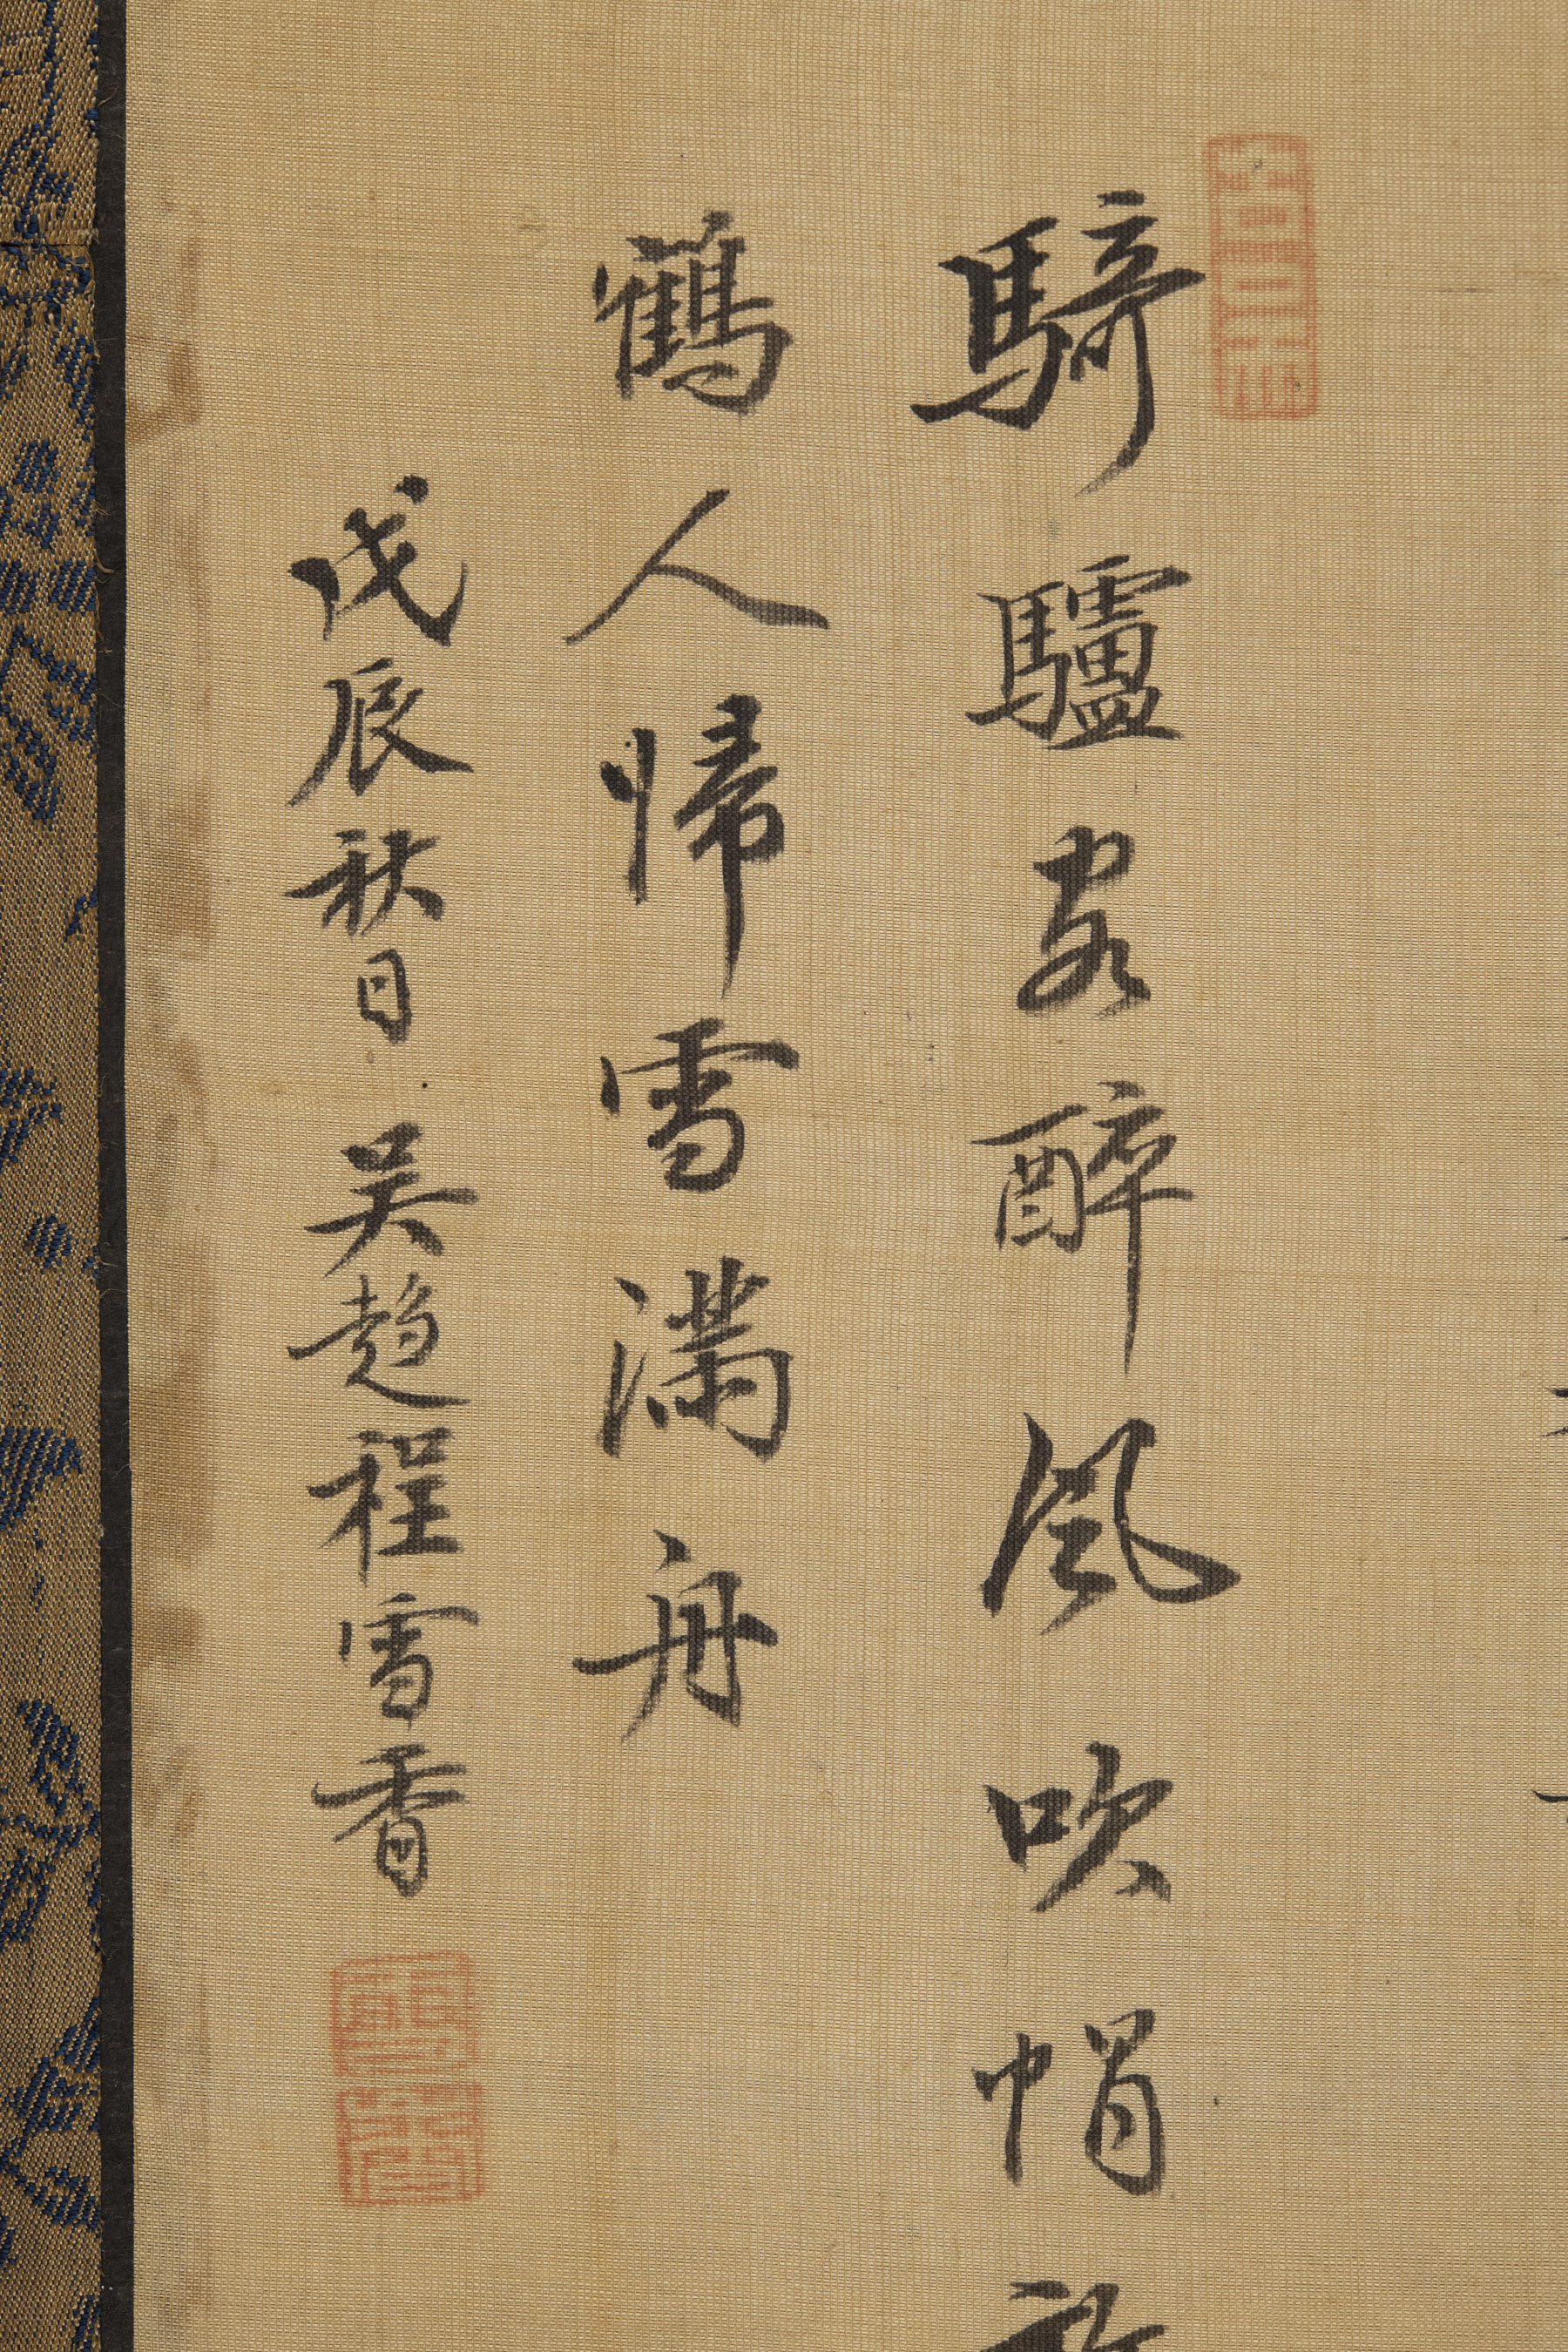 騎驢客醉風吹帽
鶴人帰雪滿舟
戊辰秋日 吳趨程雪香